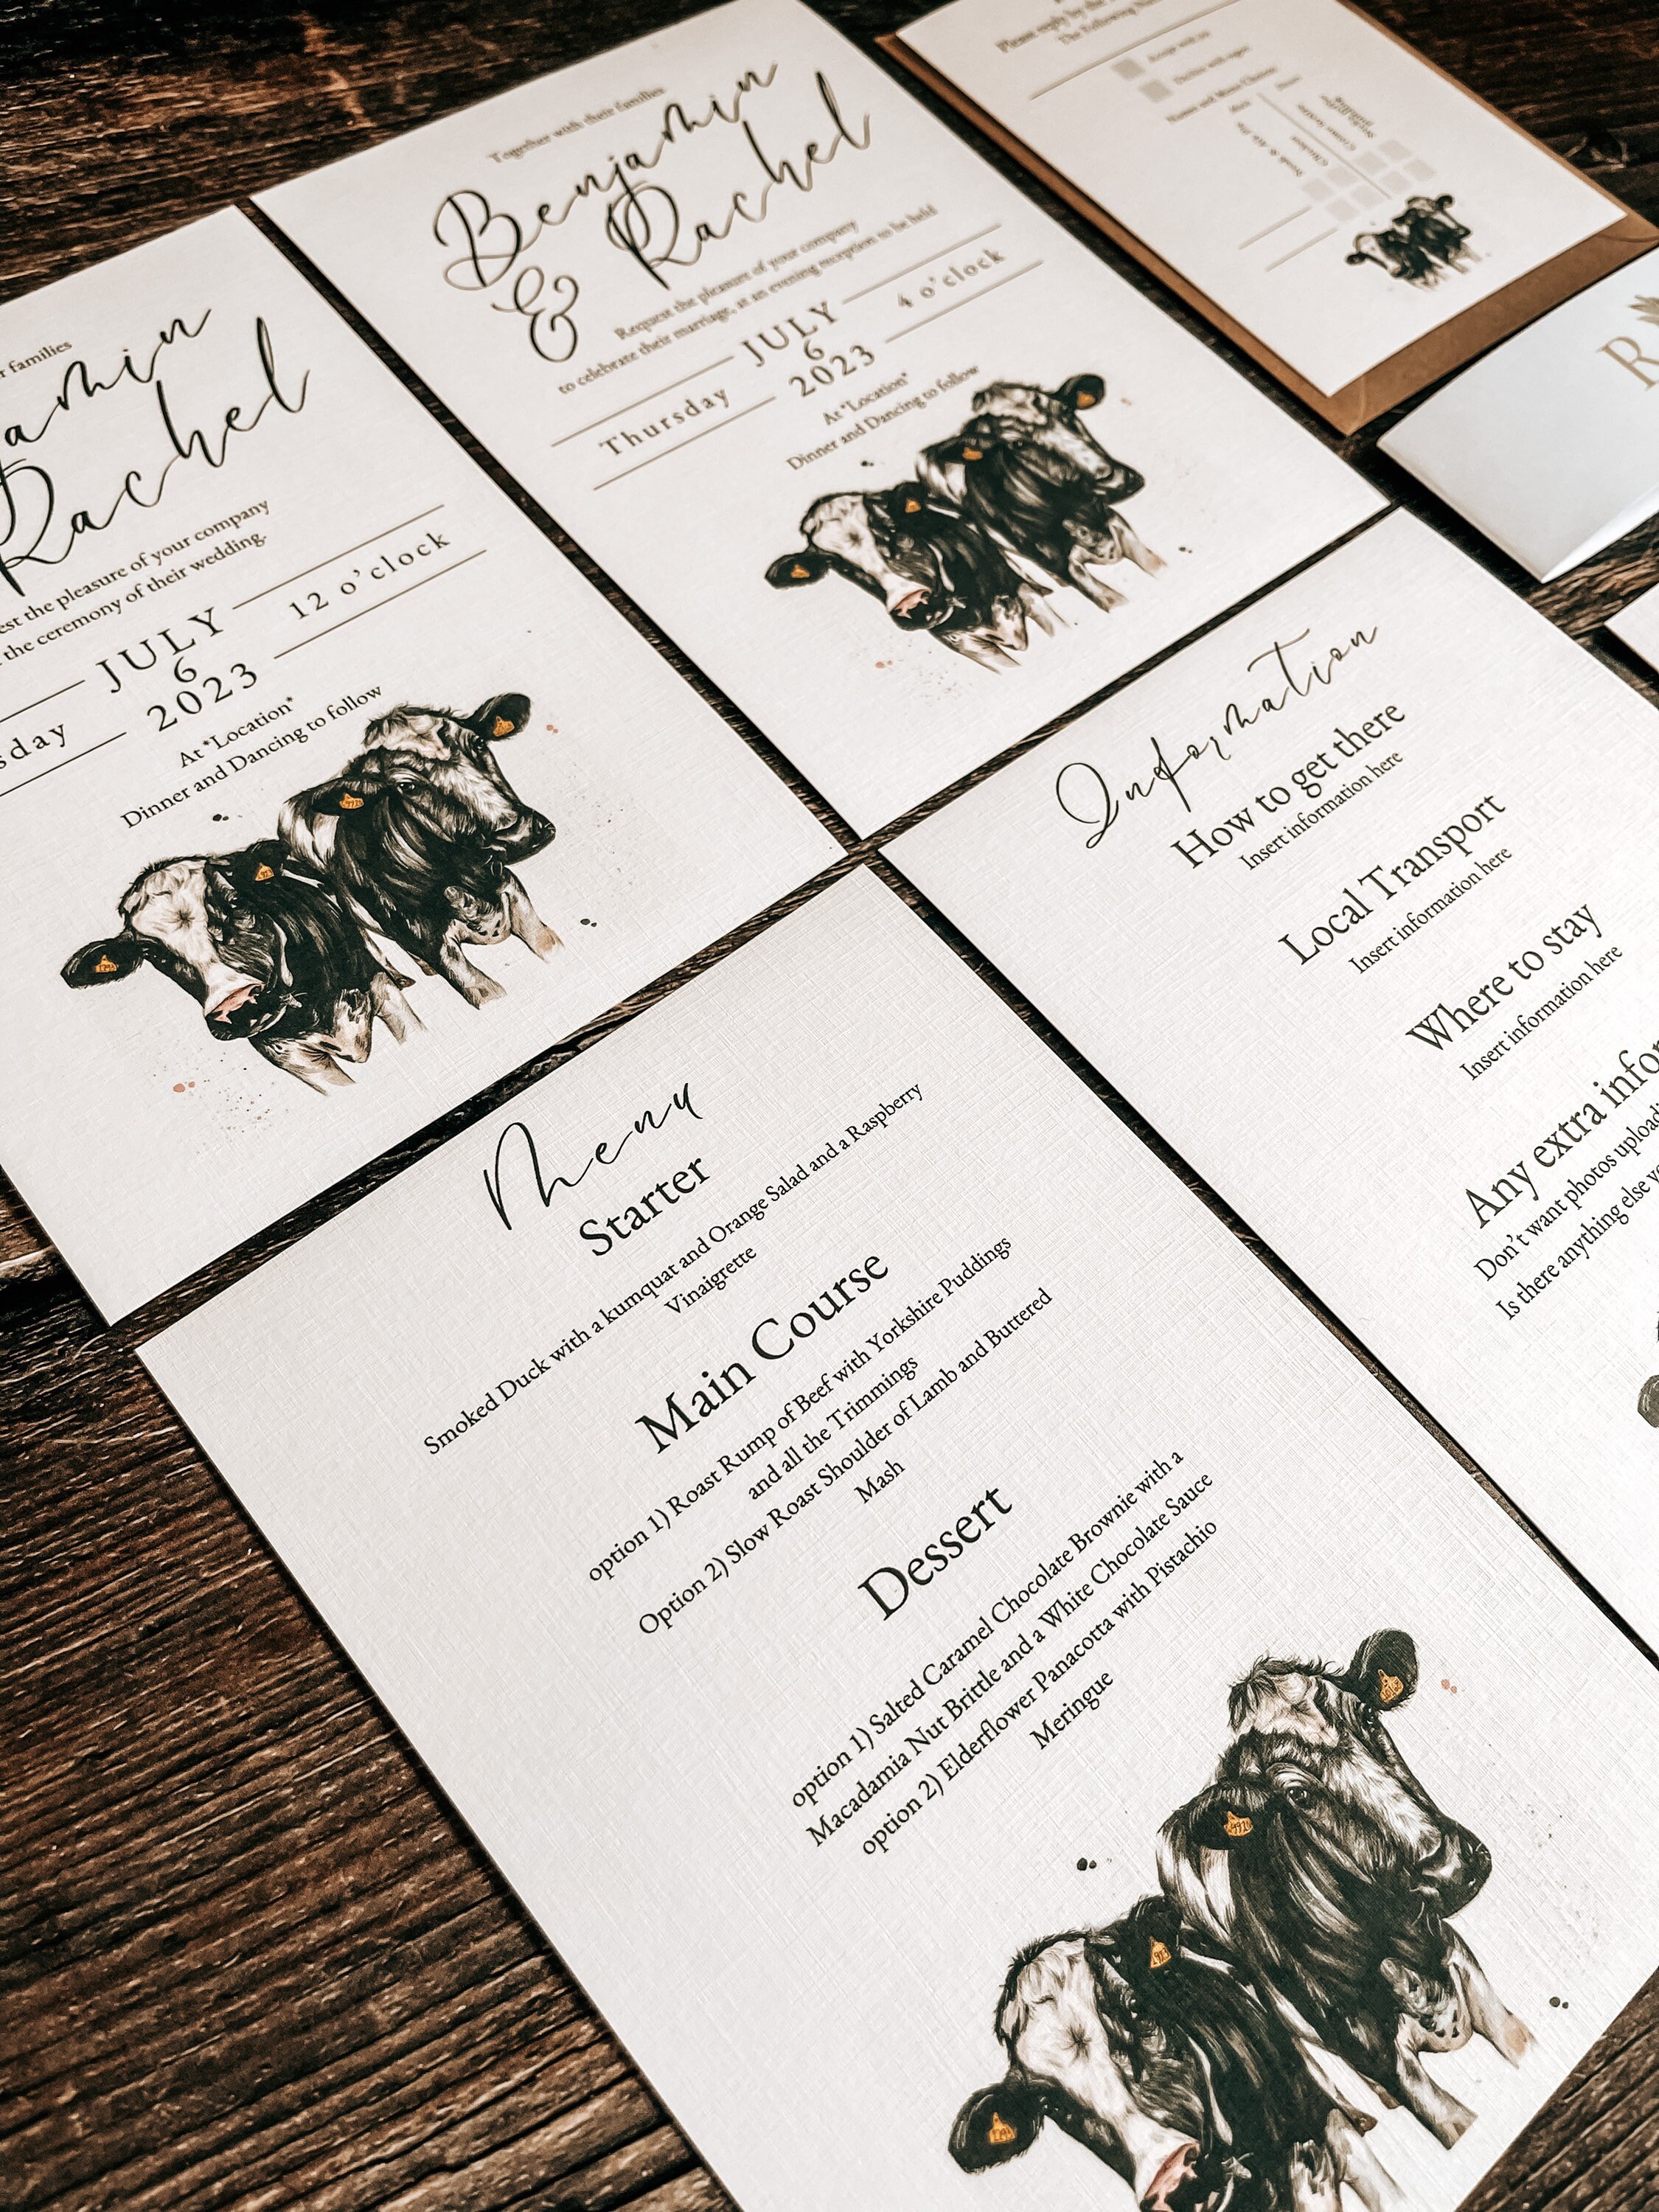 r families
jamin
Rachel
est the pleasure of your company
the ceremony of their wedding.
JULY
sday 6 12 o'clock
2023
At *Location*
Dinner and Dancing to follow
Together with their families
Benjamin
& Rachel
Request the pleasure of your company
to celebrate their marriage, at an evening reception to be held
JULY
Thursday 6 4 o'clock
2023
At *Location*
Dinner and Dancing to follow
Please reply by the
The Following
Accept with
Decline with regret
R
Menu
Starter
Smoked Duck with a kumquat and Orange Salad and a Raspberry
Vinaigrette
Main Course
option 1) Roast Rump of Beef with Yorkshire Puddings
and all the Trimmings
Option 2) Slow Roast Shoulder of Lamb and Buttered
Mash
Dessert
option 1) Salted Caramel Chocolate Brownie with a
Macadamia Nut Brittle and a White Chocolate Sauce
option 2) Elderflower Panacotta with Pistachio
Meringue
Information
How to get there
Insert information here
Local Transport
Insert information here
Where to stay
Insert information here
Any extra infor
Don't want photos uploadi
Is there anything else yo